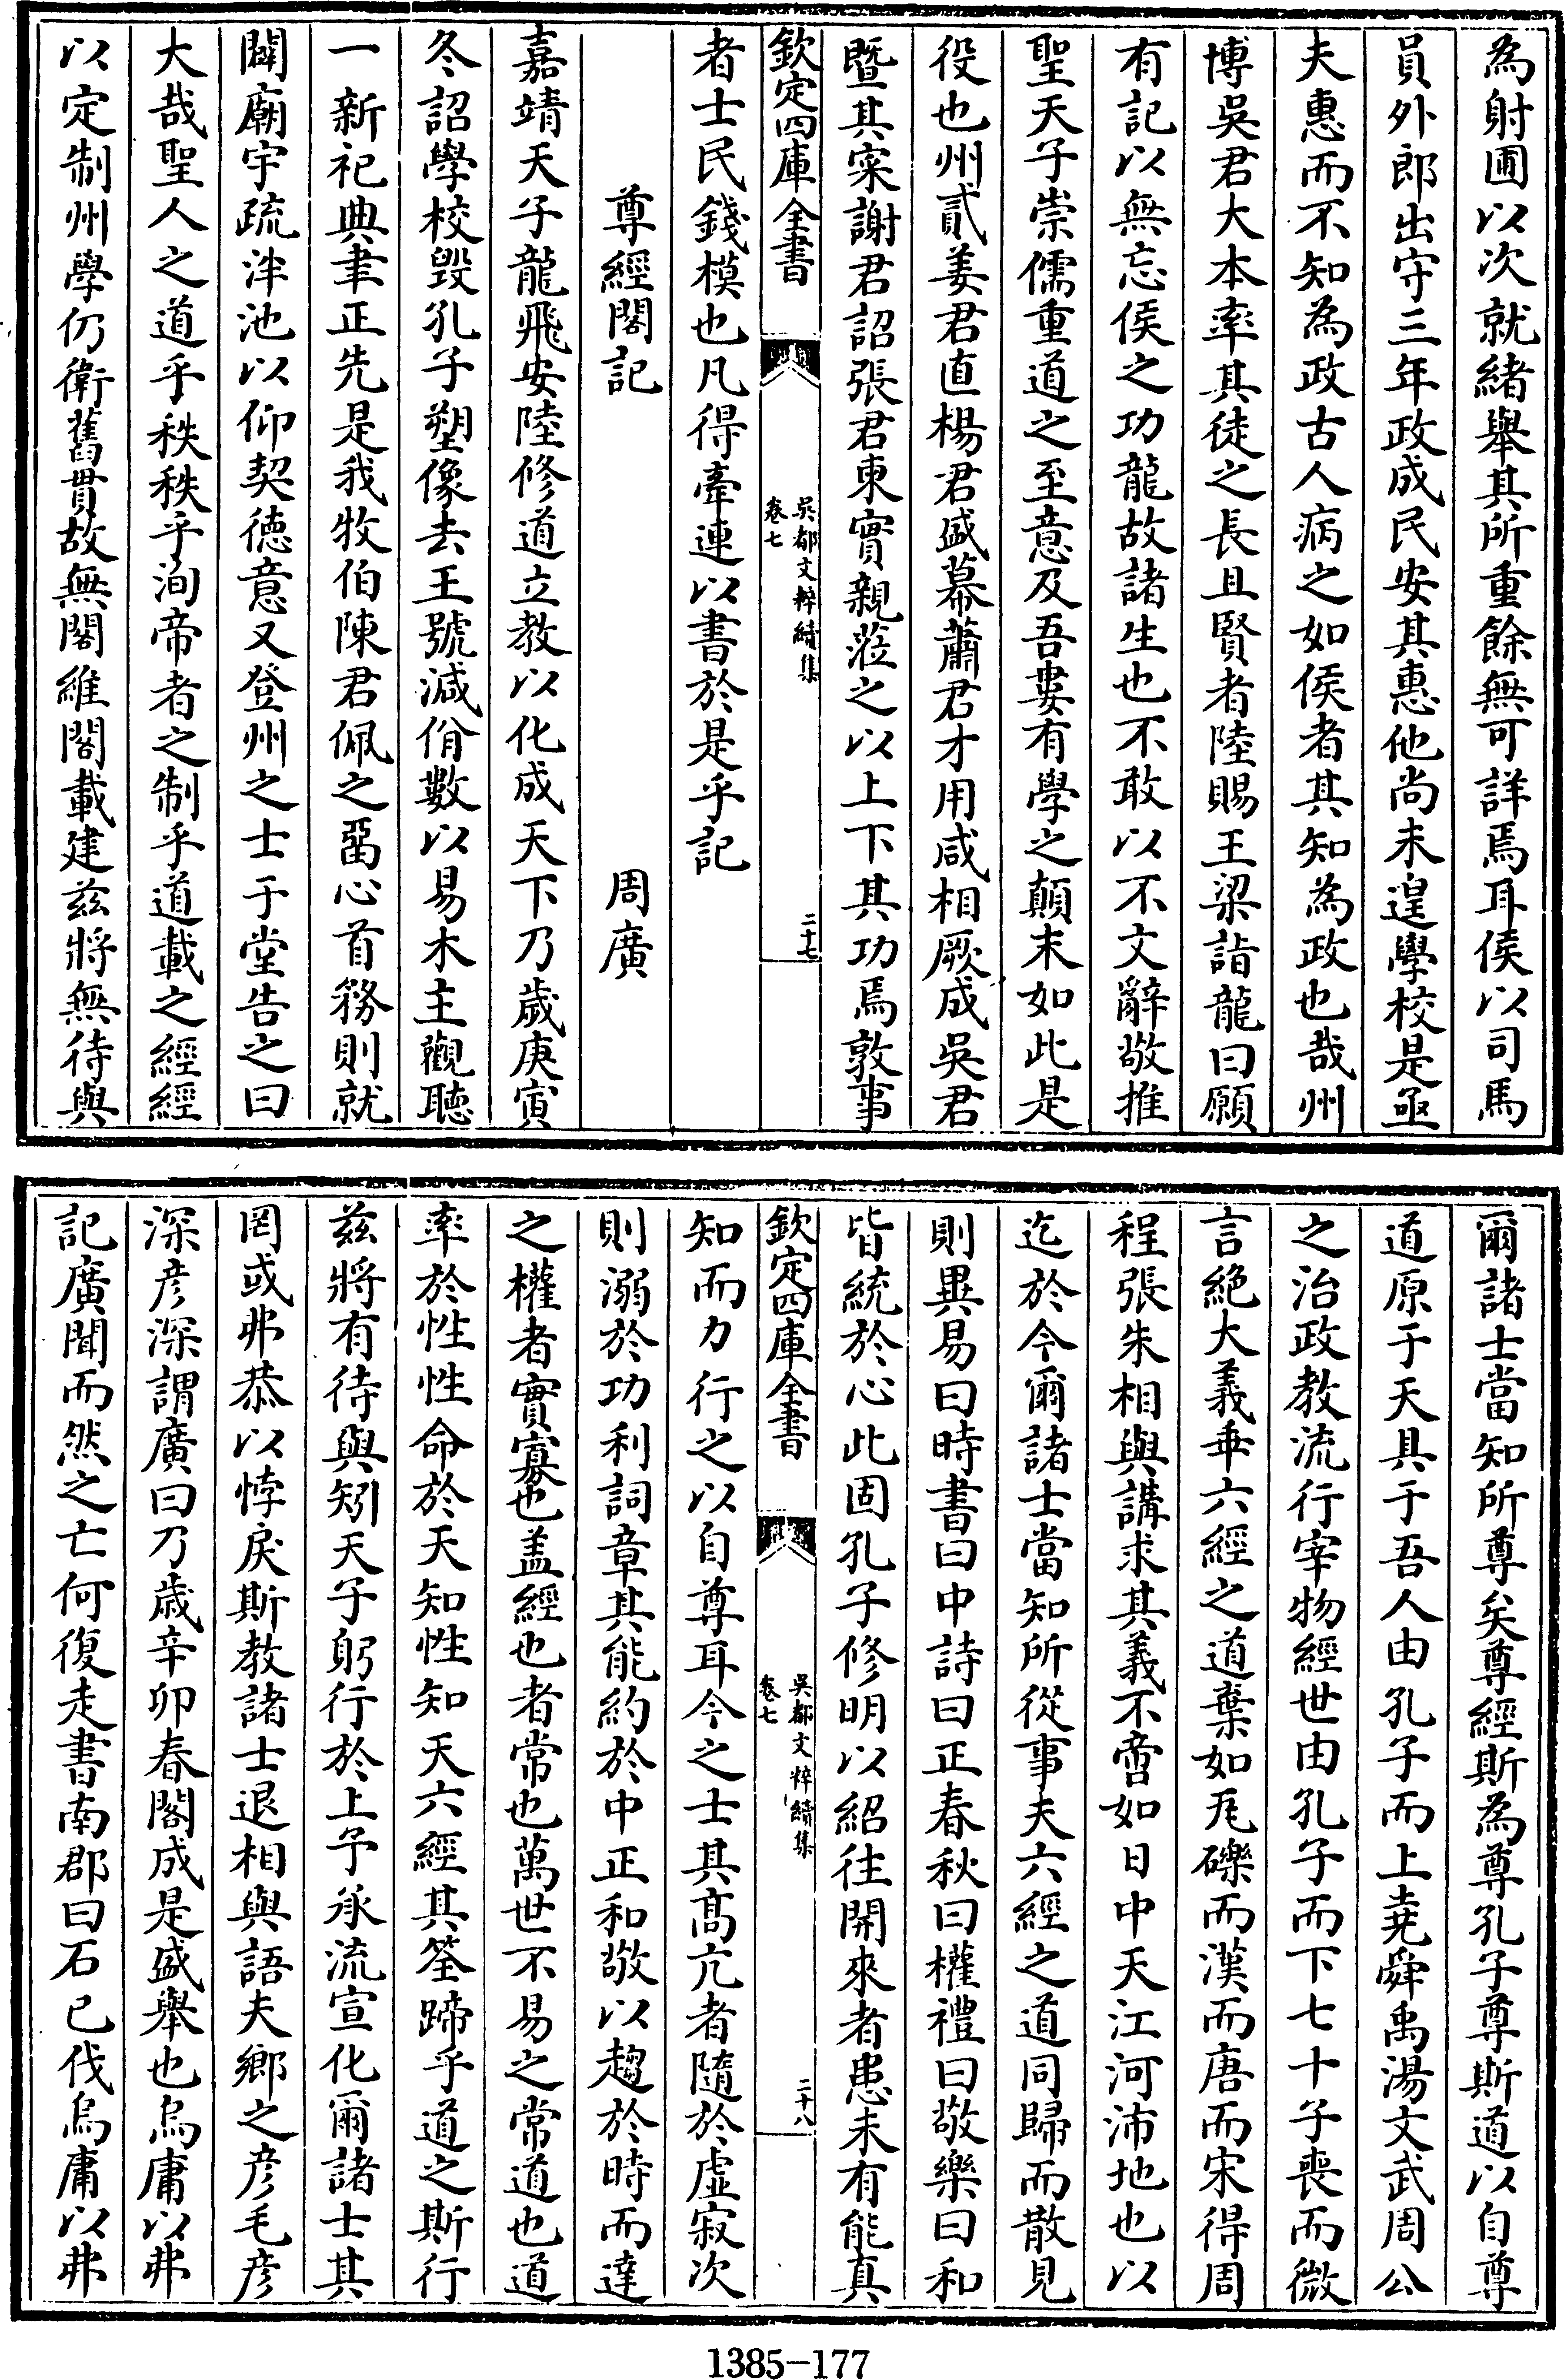 為射圃以次就緒舉其所重餘無可詳焉耳侯以司馬
員外郎出守三年政成民安其惠他尚未遑學校是亟
夫惠而不知為政古人病之如侯者其知為政也哉州
博吳君大本率其徒之長且賢者陸賜王梁詣龍曰願
有記以無忘侯之功龍故諸生也不敢以不文辭敬推
聖天子崇儒重道之至意及吾婁有學之顛末如此是
役也州貳姜君直楊君盛幕蕭君才用咸相厥成吳君
暨其寀謝君詔張君東實親蒞之以上下其功焉敦事
欽定四庫全書
吳都文粹續集
卷七
二十七
者士民錢模也凡得牽連以書於是乎記
尊經閣記
周廣
嘉靖天子龍飛安陸修道立教以化成天下乃歲庚寅
冬詔學校毀孔子塑像去王號減佾數以易木主觀聽
一新祀典聿正先是我牧伯陳君佩之畱心首務則就
闢廟宇疏泮池以仰契德意又登州之士于堂告之曰
大哉聖人之道乎秩秩乎洵帝者之制乎道載之經經
以定制州學仍衛舊貫故無閣維閣載建茲將無待與
爾諸士當知所尊矣尊經斯為尊孔子尊斯道以自尊
道原于天具于吾人由孔子而上堯舜禹湯文武周公
之治政教流行宰物經世由孔子而下七十子喪而微
言絕大義乖六經之道棄如瓦礫而漢而唐而宋得周
程張朱相與講求其義不啻如日中天江河沛地也以
迄於今爾諸士當知所從事夫六經之道同歸而散見
則異易曰時書曰中詩曰正春秋曰權禮曰敬樂曰和
皆統於心此固孔子修明以紹往開來者患未有能真
欽定四庫全書
吳都文粹續集
卷七
二十八
知而力行之以自尊耳今之士其高亢者隨於虛寂次
則溺於功利詞章其能約於中正和敬以趨於時而達
之權者實寡也盖經也者常也萬世不易之常道也道
率於性性命於天知性知天六經其筌蹄乎道之斯行
茲將有待與矧天子躬行於上予承流宣化爾諸士其
罔或弗恭以悖戾斯教諸士退相與語夫鄉之彥毛彥
深彥深謂廣曰乃歲辛卯春閣成是盛舉也烏庸以弗
記廣聞而然之亡何復走書南郡曰石已伐烏庸以弗
1385-177